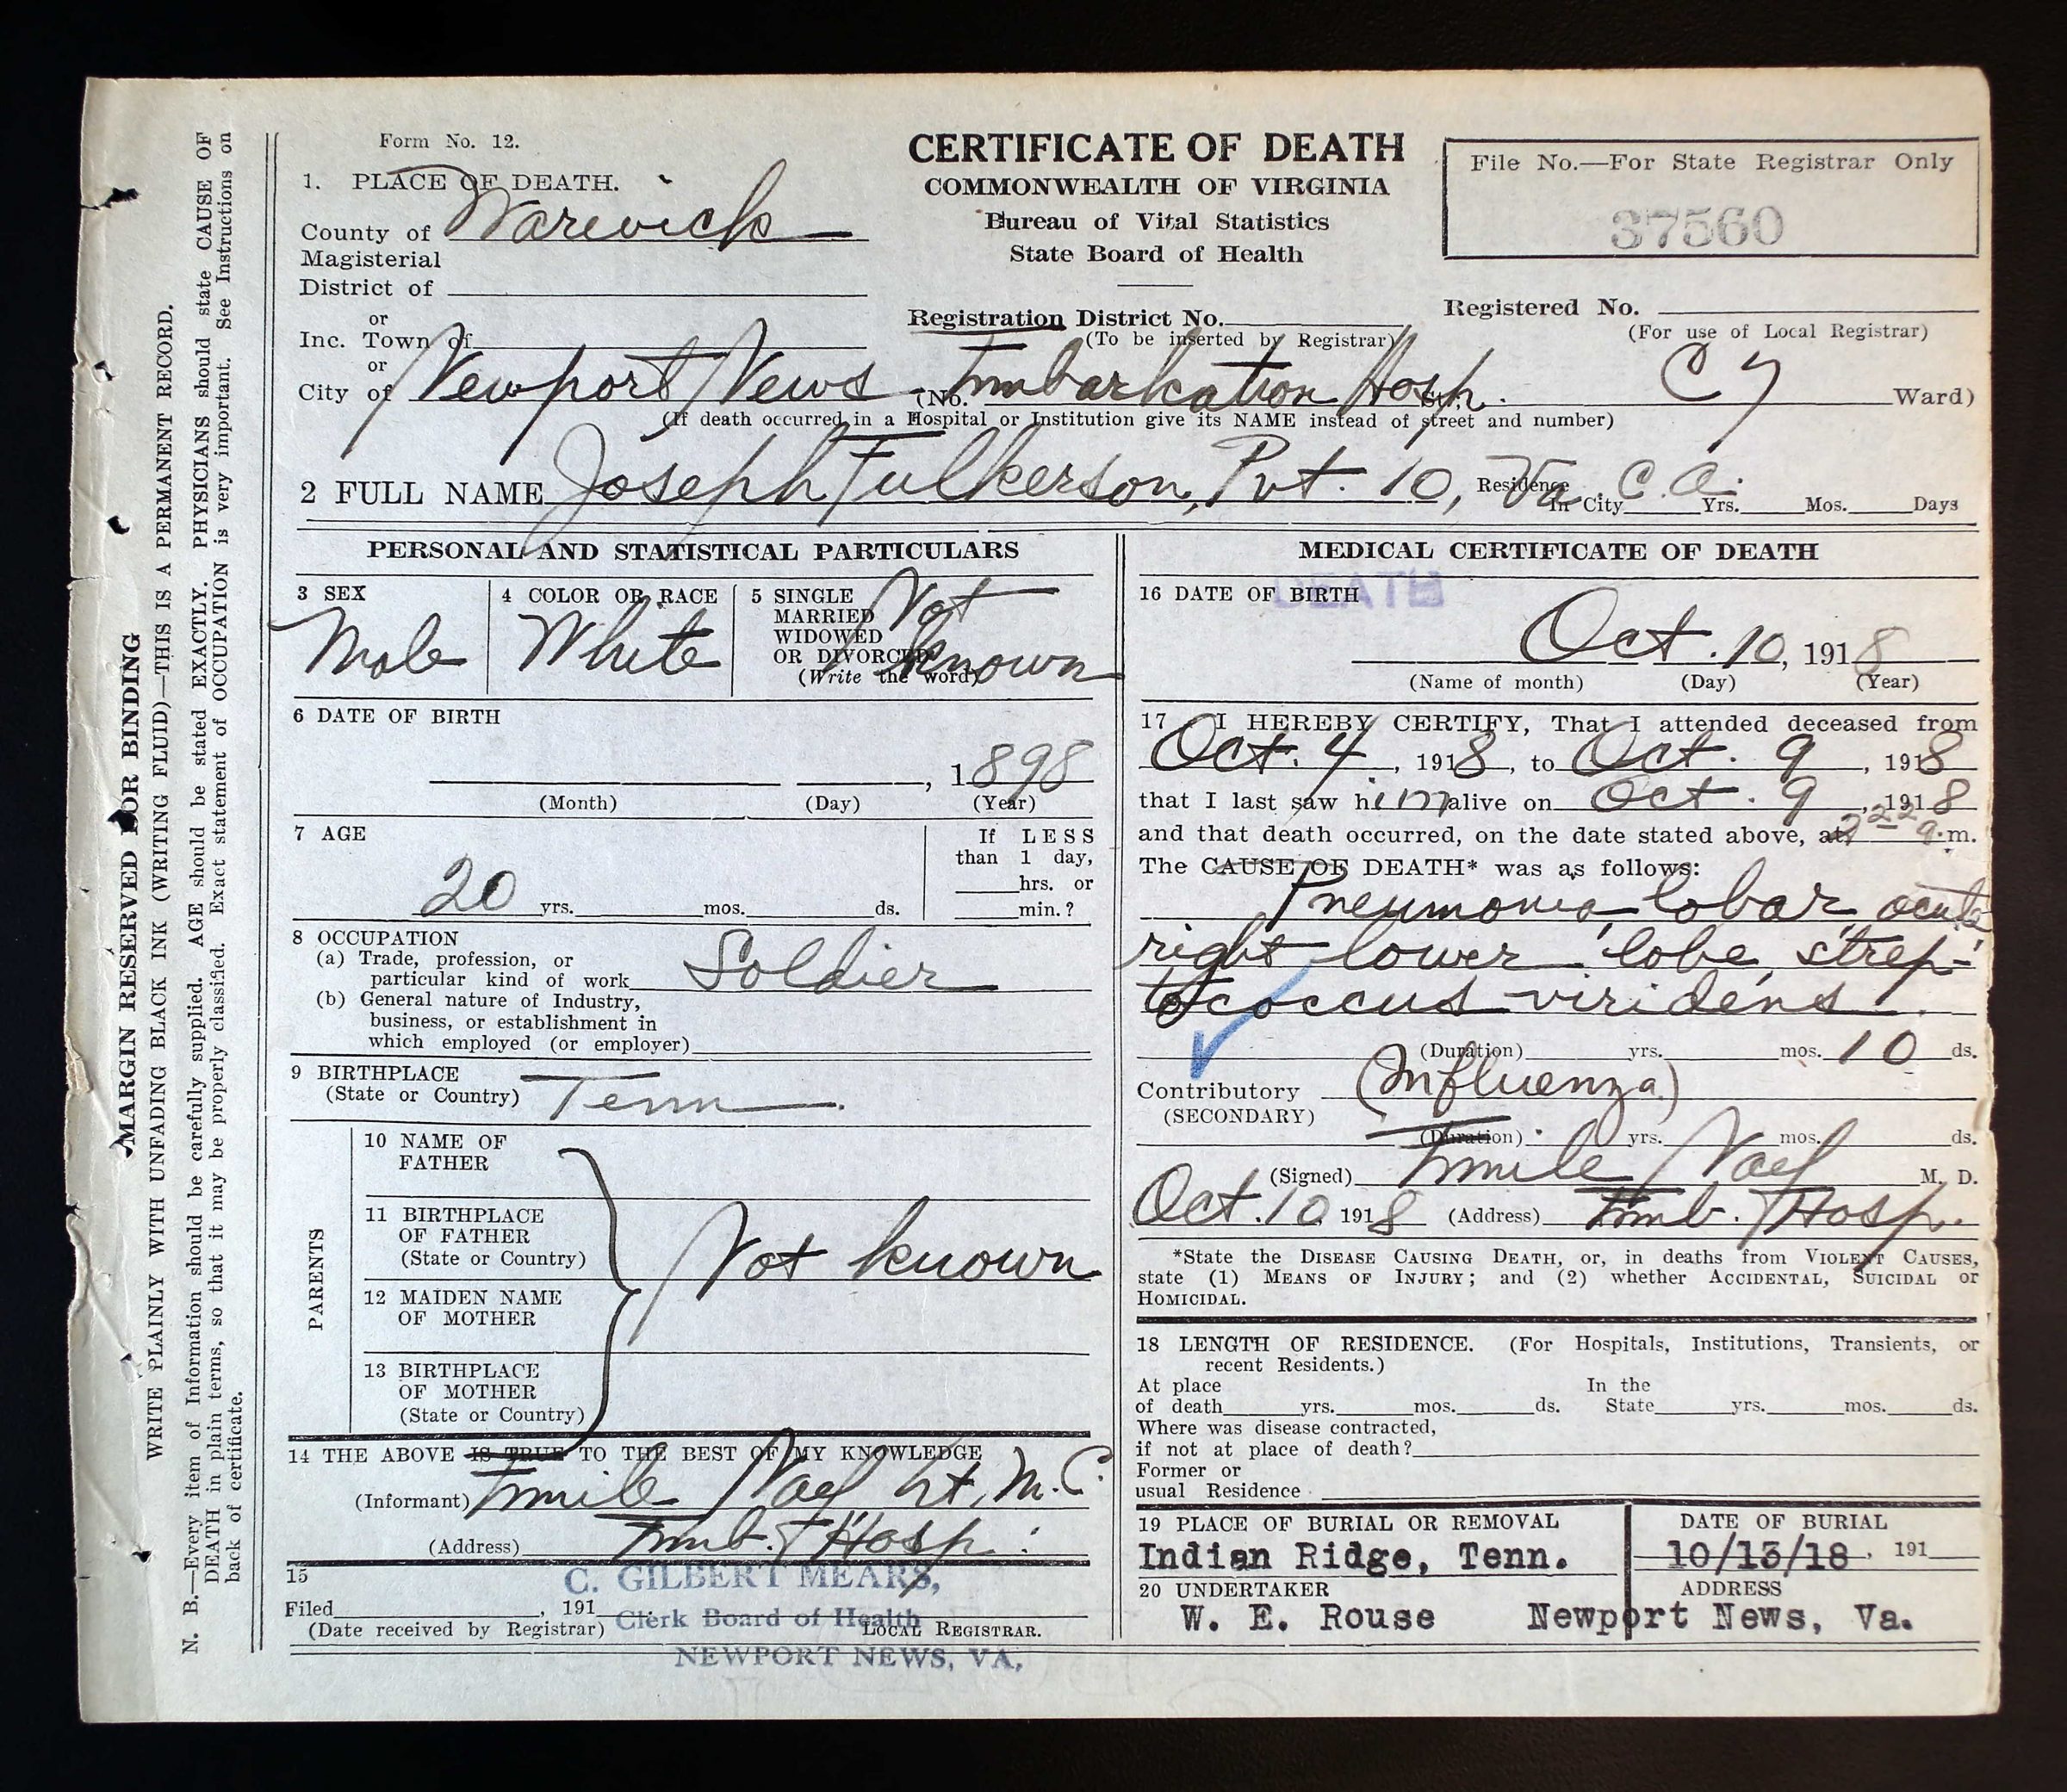 Form No. 12.
1. PLACE OF DEATH.
County of Warwick
Magisterial
District of
or
Inc. Town of
or
City of Newport News (No. Embarkation Hosp. St. C 7 Ward)
(If death occurred in a Hospital or Institution give its NAME instead of street and number)
CERTIFICATE OF DEATH
COMMONWEALTH OF VIRGINIA
Bureau of Vital Statistics
State Board of Health
Registration District No.
(To be inserted by Registrar)
File No.—For State Registrar Only
37560
Registered No.
(For use of Local Registrar)
2 FULL NAME Joseph Fulkerson, Pvt. 10, Va. C. A.
Residence In City Yrs. Mos. Days
PERSONAL AND STATISTICAL PARTICULARS
3 SEX
Male
4 COLOR OR RACE
White
5 SINGLE
MARRIED
WIDOWED
OR DIVORCED
(Write the word)
Not
known
6 DATE OF BIRTH
, 1898
(Month) (Day) (Year)
7 AGE
20 yrs. mos. ds.
If LESS
than 1 day,
hrs. or
min.?
8 OCCUPATION
(a) Trade, profession, or
particular kind of work Soldier
(b) General nature of Industry,
business, or establishment in
which employed (or employer)
9 BIRTHPLACE
(State or Country) Tenn
PARENTS
10 NAME OF
FATHER
11 BIRTHPLACE
OF FATHER
(State or Country)
Not known
12 MAIDEN NAME
OF MOTHER
13 BIRTHPLACE
OF MOTHER
(State or Country)
14 THE ABOVE IS TRUE TO THE BEST OF MY KNOWLEDGE
(Informant) Emile Lt, M. C.
(Address) Emb. Hosp.
15
Filed , 191
(Date received by Registrar)
C. GILBERT MEARS,
Clerk Board of Health
LOCAL REGISTRAR.
NEWPORT NEWS, VA,
MEDICAL CERTIFICATE OF DEATH
16 DATE OF BIRTH
DEATH
Oct. 10, 1918
(Name of month) (Day) (Year)
17 I HEREBY CERTIFY, That I attended deceased from
Oct. 4, 1918, to Oct. 9, 1918
that I last saw him alive on Oct. 9, 1918
and that death occurred, on the date stated above, at a.m.
The CAUSE OF DEATH* was as follows:
Pneumonia, lobar, acute
right lower lobe, strep-
tococcus viridens.
(Duration) yrs. mos. 10 ds.
Contributory (Influenza)
(SECONDARY)
(Duration) yrs. mos. ds.
(Signed) Emile M. D.
Oct. 10 1918 (Address) Emb. Hosp.
*State the DISEASE CAUSING DEATH, or, in deaths from VIOLENT CAUSES,
state (1) MEANS OF INJURY; and (2) whether ACCIDENTAL, SUICIDAL or
HOMICIDAL.
18 LENGTH OF RESIDENCE. (For Hospitals, Institutions, Transients, or
recent Residents.)
At place In the
of death yrs. mos. ds. State yrs. mos. ds.
Where was disease contracted,
if not at place of death?
Former or
usual Residence
19 PLACE OF BURIAL OR REMOVAL
Indian Ridge, Tenn.
DATE OF BURIAL
10/13/18, 191
20 UNDERTAKER
W. E. Rouse
ADDRESS
Newport News, Va.
MARGIN RESERVED FOR BINDING
WRITE PLAINLY WITH UNFADING BLACK INK (WRITING FLUID)—THIS IS A PERMANENT RECORD.
N. B.—Every item of Information should be carefully supplied. AGE should be stated EXACTLY. PHYSICIANS should state CAUSE OF
DEATH in plain terms, so that it may be properly classified. Exact statement of OCCUPATION is very important. See Instructions on
back of certificate.